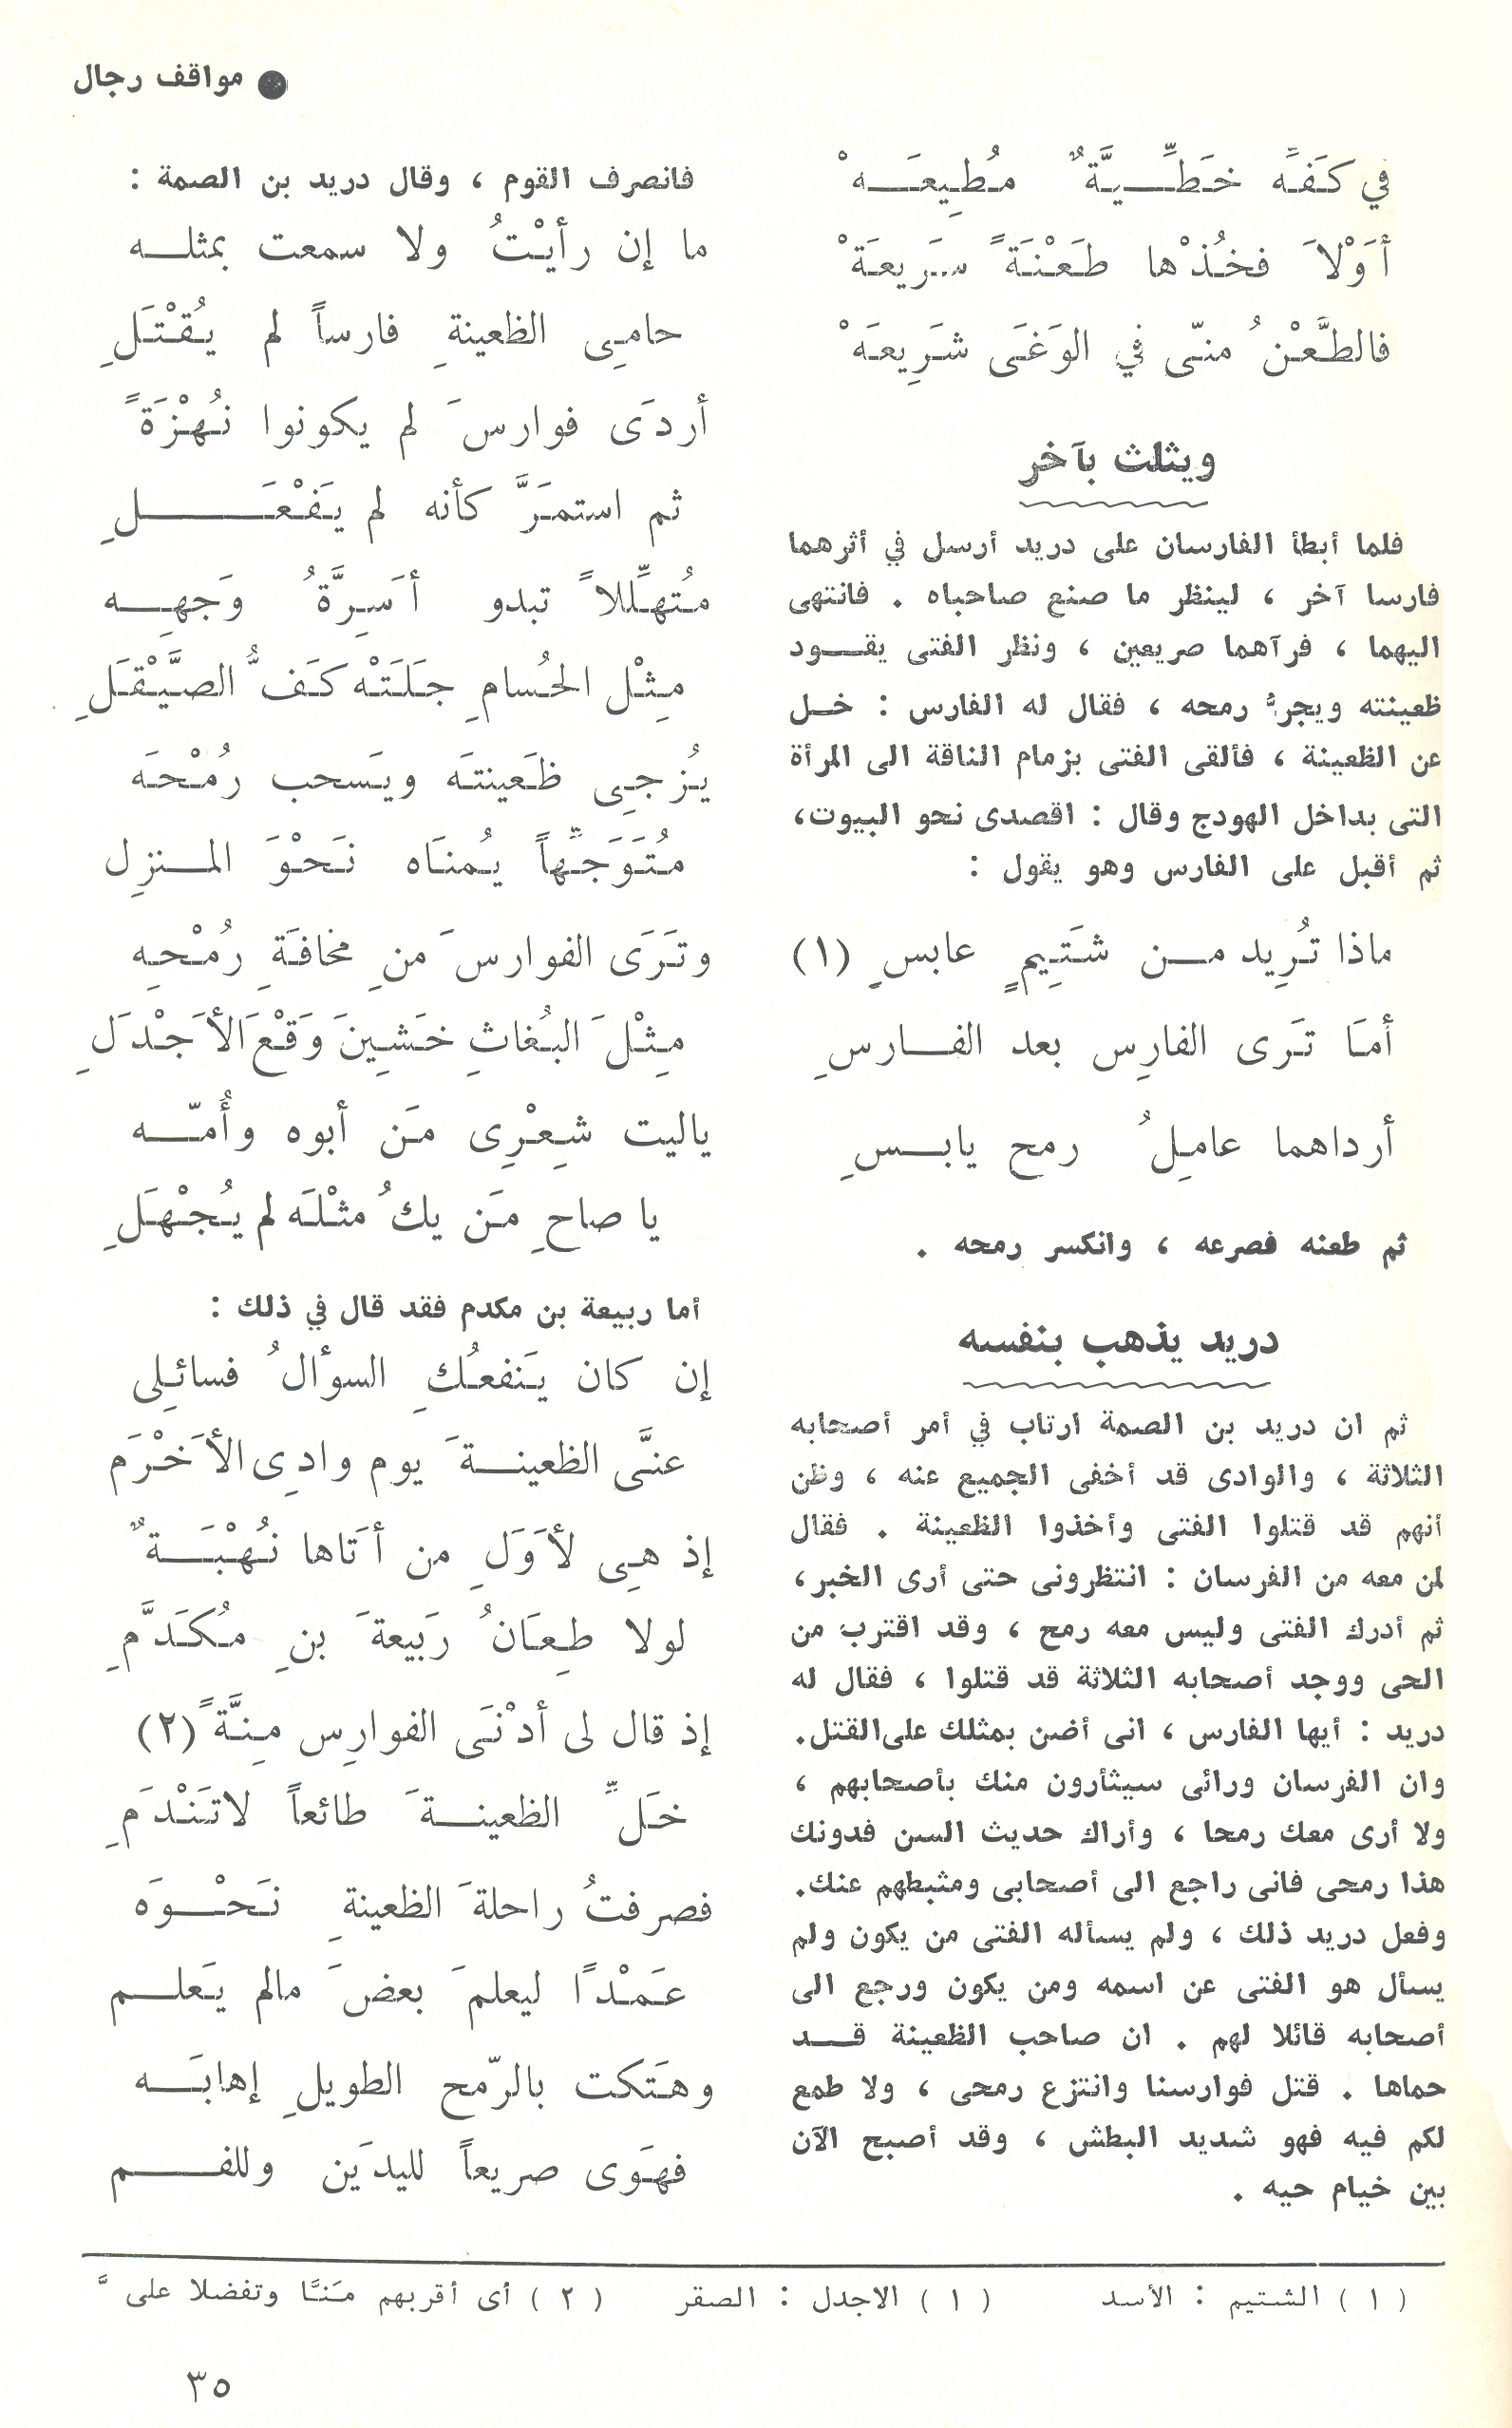 ● مواقف رجال
في كَفِّه خَطِّيَّةٌ مُطِيعَهْ
أَوْلاَ فخُذْها طَعْنَةً سَرِيعَةْ
فالطَّعْنُ منّى في الوَغَى شَرِيعَهْ
ويثلث بآخر
فلما أبطأ الفارسان على دريد أرسل في أثرهما
فارسا آخر ، لينظر ما صنع صاحباه . فانتهى
اليهما ، فرآهما صريعين ، ونظر الفتى يقود
ظعينته ويجرُّ رمحه ، فقال له الفارس : خل
عن الظعينة ، فألقى الفتى بزمام الناقة الى المرأة
التى بداخل الهودج وقال : اقصدى نحو البيوت،
ثم أقبل على الفارس وهو يقول :
ماذا تُرِيد من شَتِيمٍ عابسٍ (١)
أمَا تَرى الفارِس بعد الفارسِ
أرداهما عامِلُ رمح يابسِ
ثم طعنه فصرعه ، وانكسر رمحه .
دريد يذهب بنفسه
ثم ان دريد بن الصمة ارتاب في أمر أصحابه
الثلاثة ، والوادى قد أخفى الجميع عنه ، وظن
أنهم قد قتلوا الفتى وأخذوا الظعينة . فقال
لمن معه من الفرسان : انتظرونى حتى أرى الخبر،
ثم أدرك الفتى وليس معه رمح ، وقد اقترب من
الحى ووجد أصحابه الثلاثة قد قتلوا ، فقال له
دريد : أيها الفارس ، انى أضن بمثلك على القتل.
وان الفرسان ورائى سيثأرون منك بأصحابهم ،
ولا أرى معك رمحا ، وأراك حديث السن فدونك
هذا رمحى فانى راجع الى أصحابى ومثبطهم عنك.
وفعل دريد ذلك ، ولم يسأله الفتى من يكون ولم
يسأل هو الفتى عن اسمه ومن يكون ورجع الى
أصحابه قائلا لهم . ان صاحب الظعينة قد
حماها . قتل فوارسنا وانتزع رمحى ، ولا طمع
لكم فيه فهو شديد البطش ، وقد أصبح الآن
بين خيام حيه .
فانصرف القوم ، وقال دريد بن الصمة :
ما إن رأيْتُ ولا سمعت بمثله
حامِى الظعينةِ فارساً لم يُقْتَلِ
أردَى فوارسَ لم يكونوا نُهْزَةً
ثم استمَرَّ كأنه لم يَفْعَلِ
مُتهلِّلاً تبدو أَسِرَّةُ وَجهِه
مِثْل الحُسامِ جَلَتْه كَفُّ الصَّيْقَلِ
يُزجِى ظَعينتَه ويَسحب رُمْحَه
مُتَوَجِّهاً يُمنَاه نَحْوَ المنزِل
وتَرَى الفوارسَ منِ مخافَةِ رُمْحِه
مِثْلَ البُغاثِ خَشِينَ وَقْعَ الأَجْدَلِ
ياليت شِعْرِى مَن أبوه وأُمّه
يا صاحِ مَن يكُ مثْلَه لم يُجْهَلِ
أما ربيعة بن مكدم فقد قال في ذلك :
إن كان يَنفعُكِ السوألُ فسائلِى
عنَّى الظعينةَ يوم وادِى الأَخْرَم
إذ هِى لأَوَلِ من أَتَاها نُهْبَةٌ
لولا طِعَانُ رَبيعةَ بنِ مُكَدَّمِ
إذ قال لى أدْنَى الفوارِس مِنَّةً (٢)
خَلِّ الظعينةَ طائعاً لاتَنْدَمِ
فصرفتُ راحلةَ الظعينةِ نَحْوَه
عَمْدًا ليعلمَ بعضَ مالم يَعلم
وهَتكت بالرّمح الطويلِ إهابَه
فهَوى صريعاً لليدَين وللفم
(١) الشتيم : الأسد (١) الاجدل : الصقر (٢) أى أقربهم مَنًّا وتفضلا على
٣٥